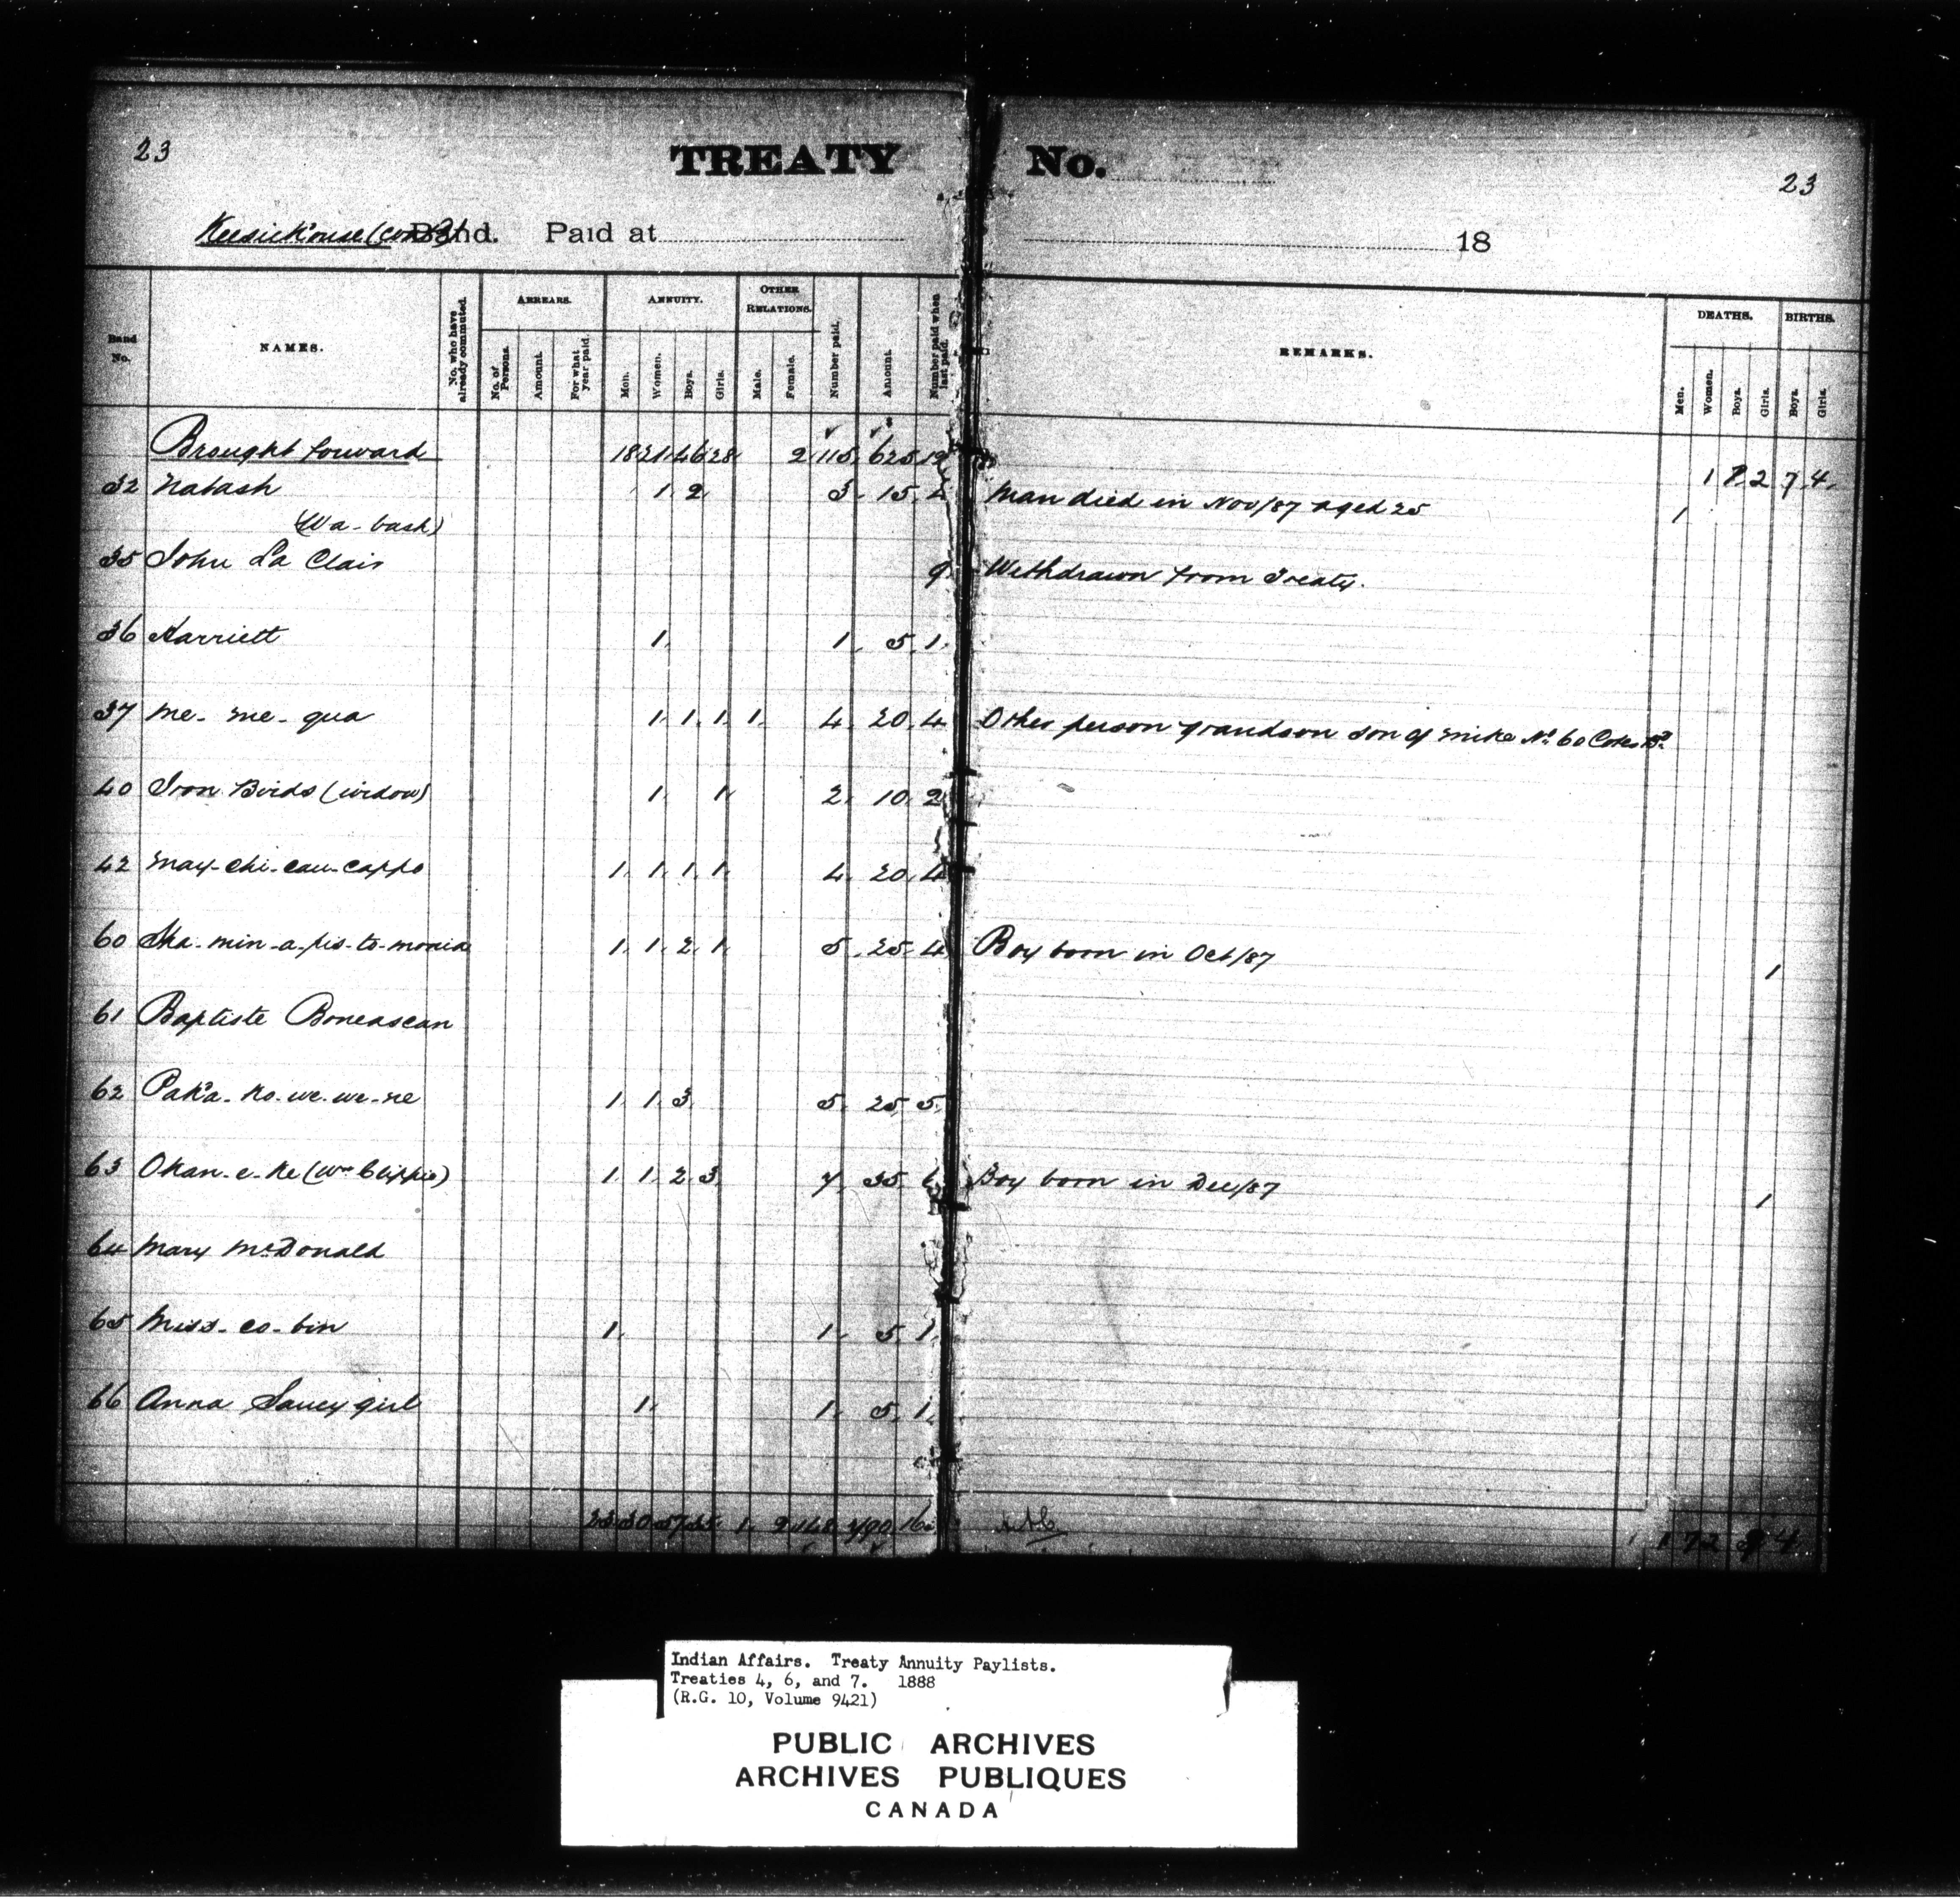 23
TREATY No.
23
Keesickouse (cont'd) Band. Paid at 18
Band No.
NAMES.
No. who have already commuted.
ARREARS.
No. of Persons.
Amount.
For what year paid.
ANNUITY.
Men.
Women.
Boys.
Girls.
OTHER RELATIONS.
Male.
Female.
Number paid.
Amount.
Number paid when last paid.
REMARKS.
DEATHS.
Men.
Women.
Boys.
Girls.
BIRTHS.
Boys.
Girls.
Brought forward 18 21 46 28 2 115 625 1 2 7 4
32 Nabash 1 2 3 15 4 Man died in Nov/87 aged 25 1
(Wa-bash)
35 John La Clair 9 Withdrawn from Treaty.
36 Harriett 1 1 5 1
37 Me-me-qua 1 1 1 1 4 20 4 Other person grandson son of Mike No. 60 Cotes Bd.
40 Iron Birds (widow) 1 1 2 10 2
42 May-chi-cau-cappo 1 1 1 1 4 20 4
60 Ska-min-a-pis-to-monia 1 1 2 1 5 25 4 Boy born in Oct/87 1
61 Baptiste Boneascan
62 Paka-ko-we-we-ne 1 1 3 5 25 5
63 Okan-e-ke (Wm 1 1 2 3 7 35 6 Boy born in Dec/87 1
64 Mary McDonald
65 Miss-co-bin 1 1 5 1
66 Anna Saucy girl 1 1 5 1
23 30 57 35 1 2 148 790
Indian Affairs. Treaty Annuity Paylists.
Treaties 4, 6, and 7. 1888
(R.G. 10, Volume 9421)
PUBLIC ARCHIVES
ARCHIVES PUBLIQUES
CANADA